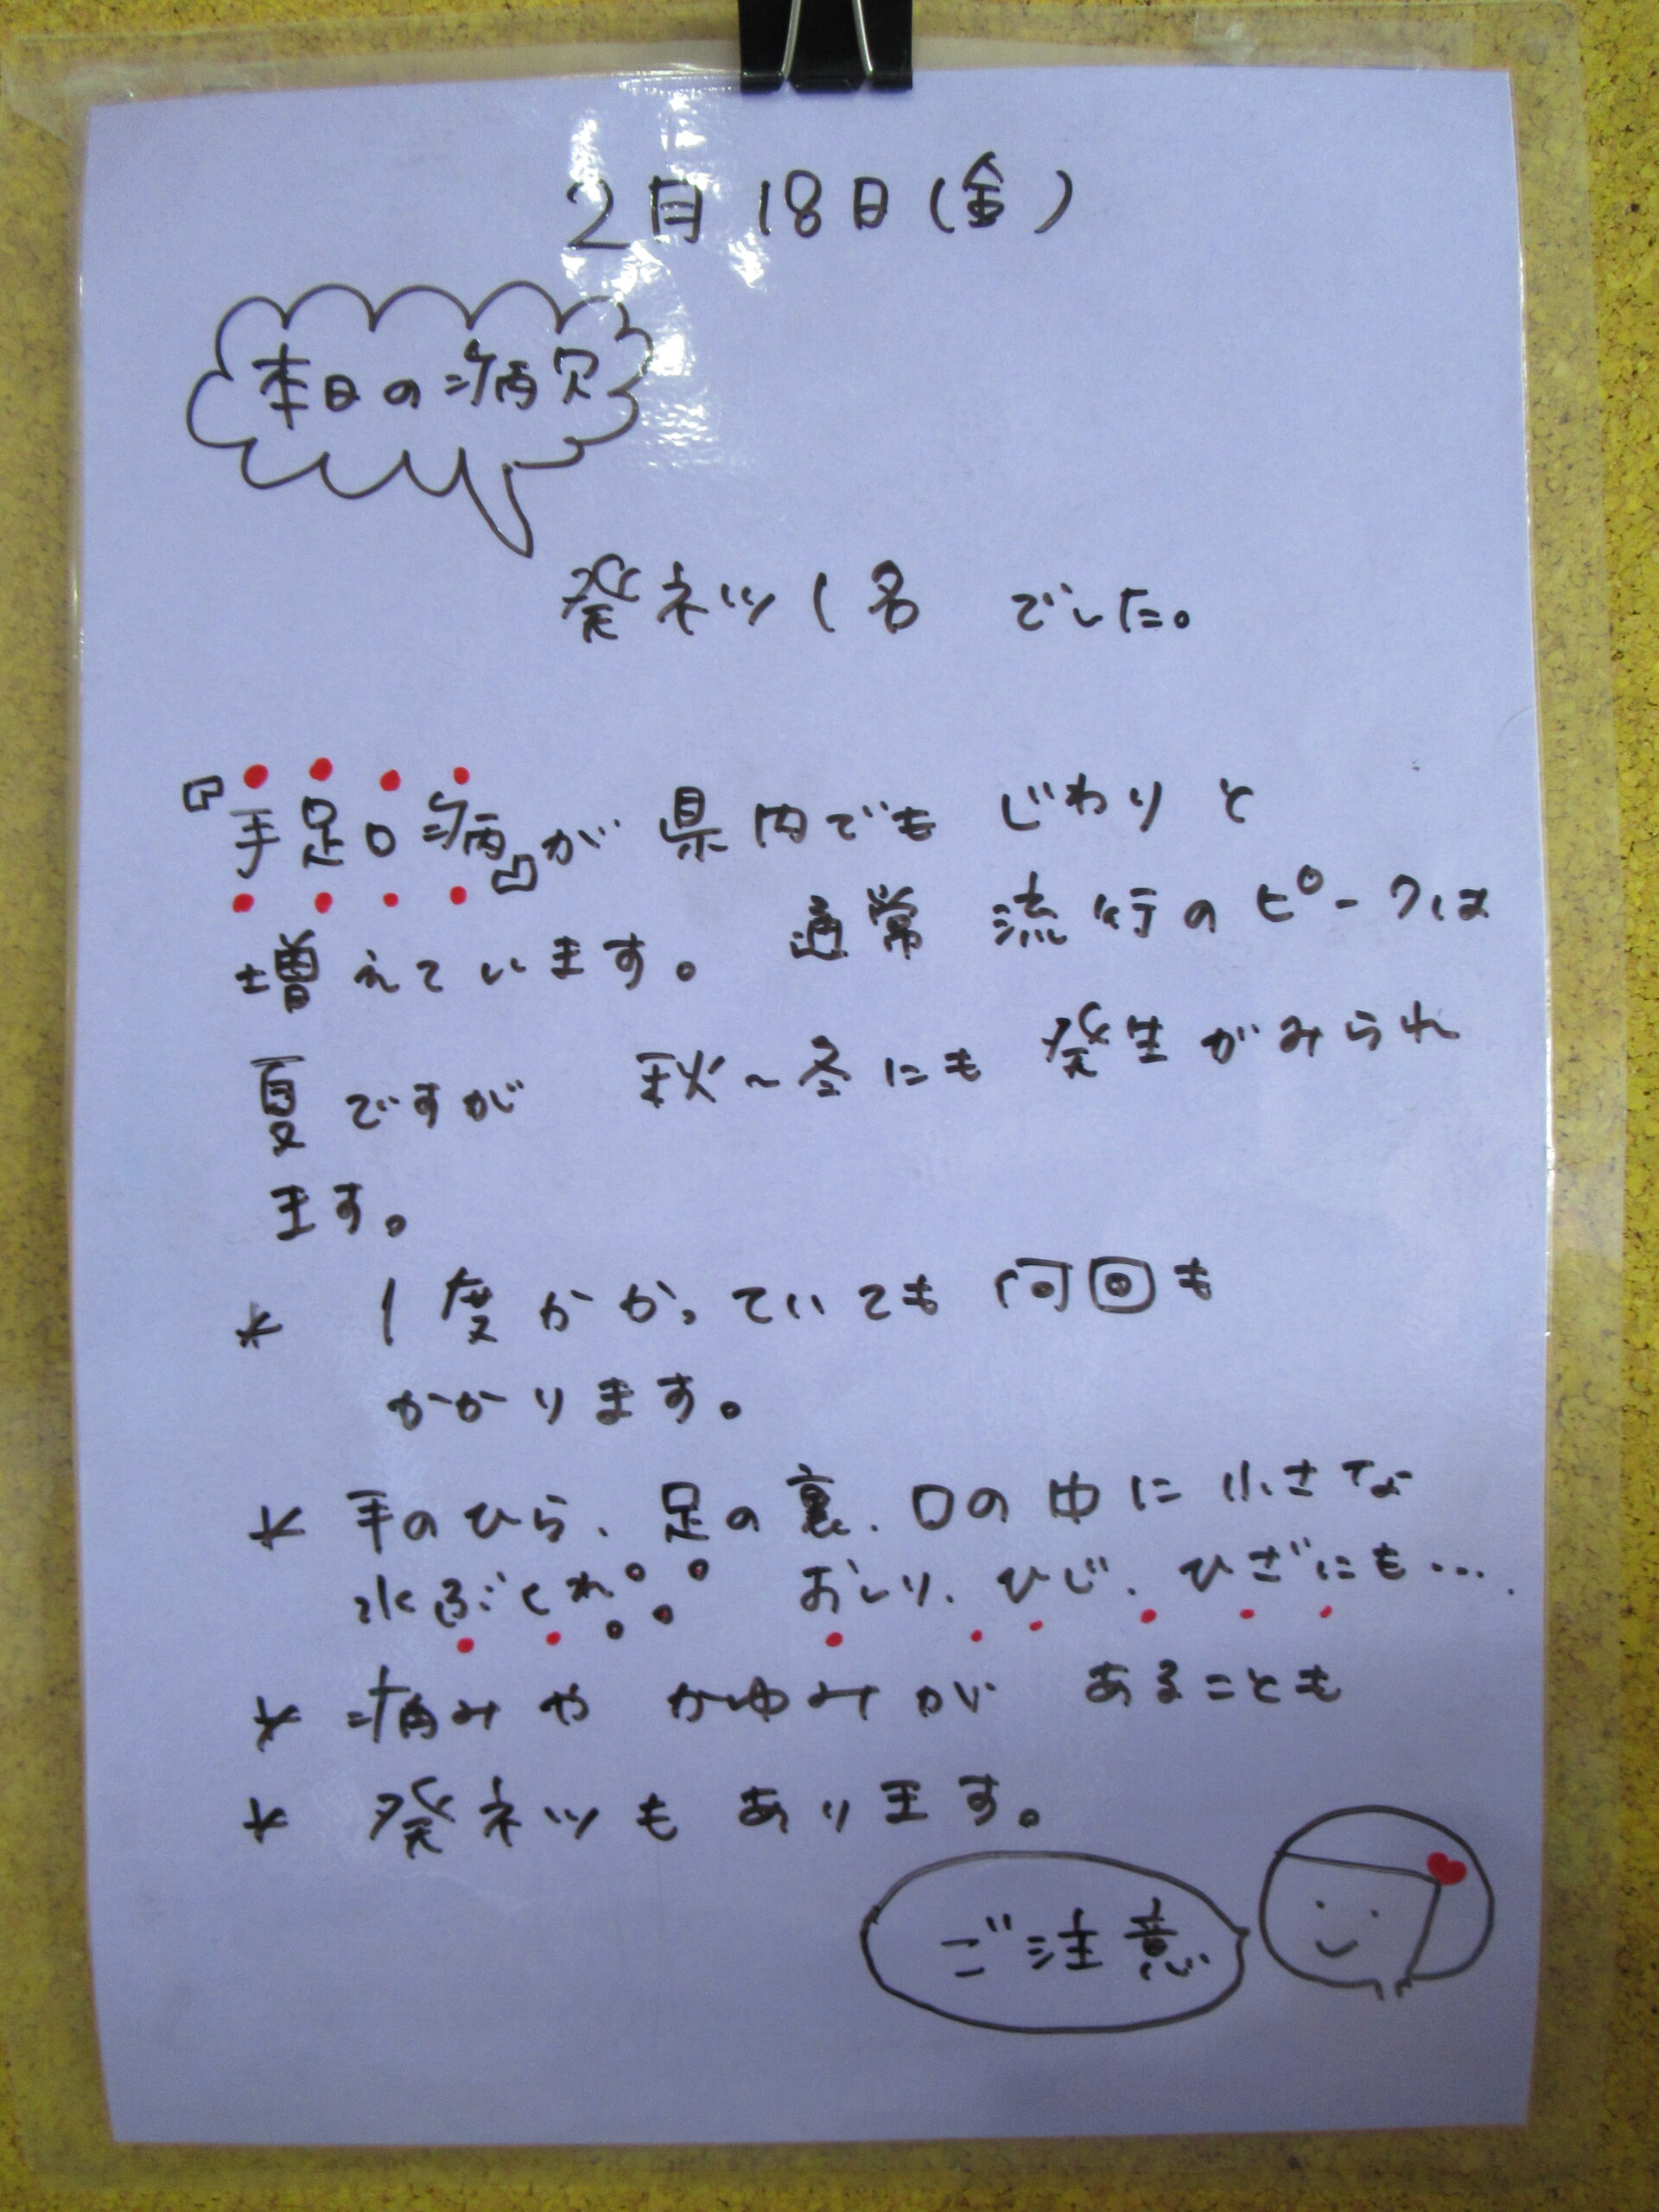 2月18日(金)
本日の病欠
発ネツ1名 でした。
『手足口病』が県内でもじわりと
増えています。 通常流行のピークは
夏ですが 秋~冬にも発生がみられ
ます。
* 1度かかっていても何回も
かかります。
* 手のひら、足の裏、口の中に小さな
水ぶくれ。 おしり、ひじ、ひざにも…
* 痛みやかゆみが あることも
* 発ネツもあります。
ご注意